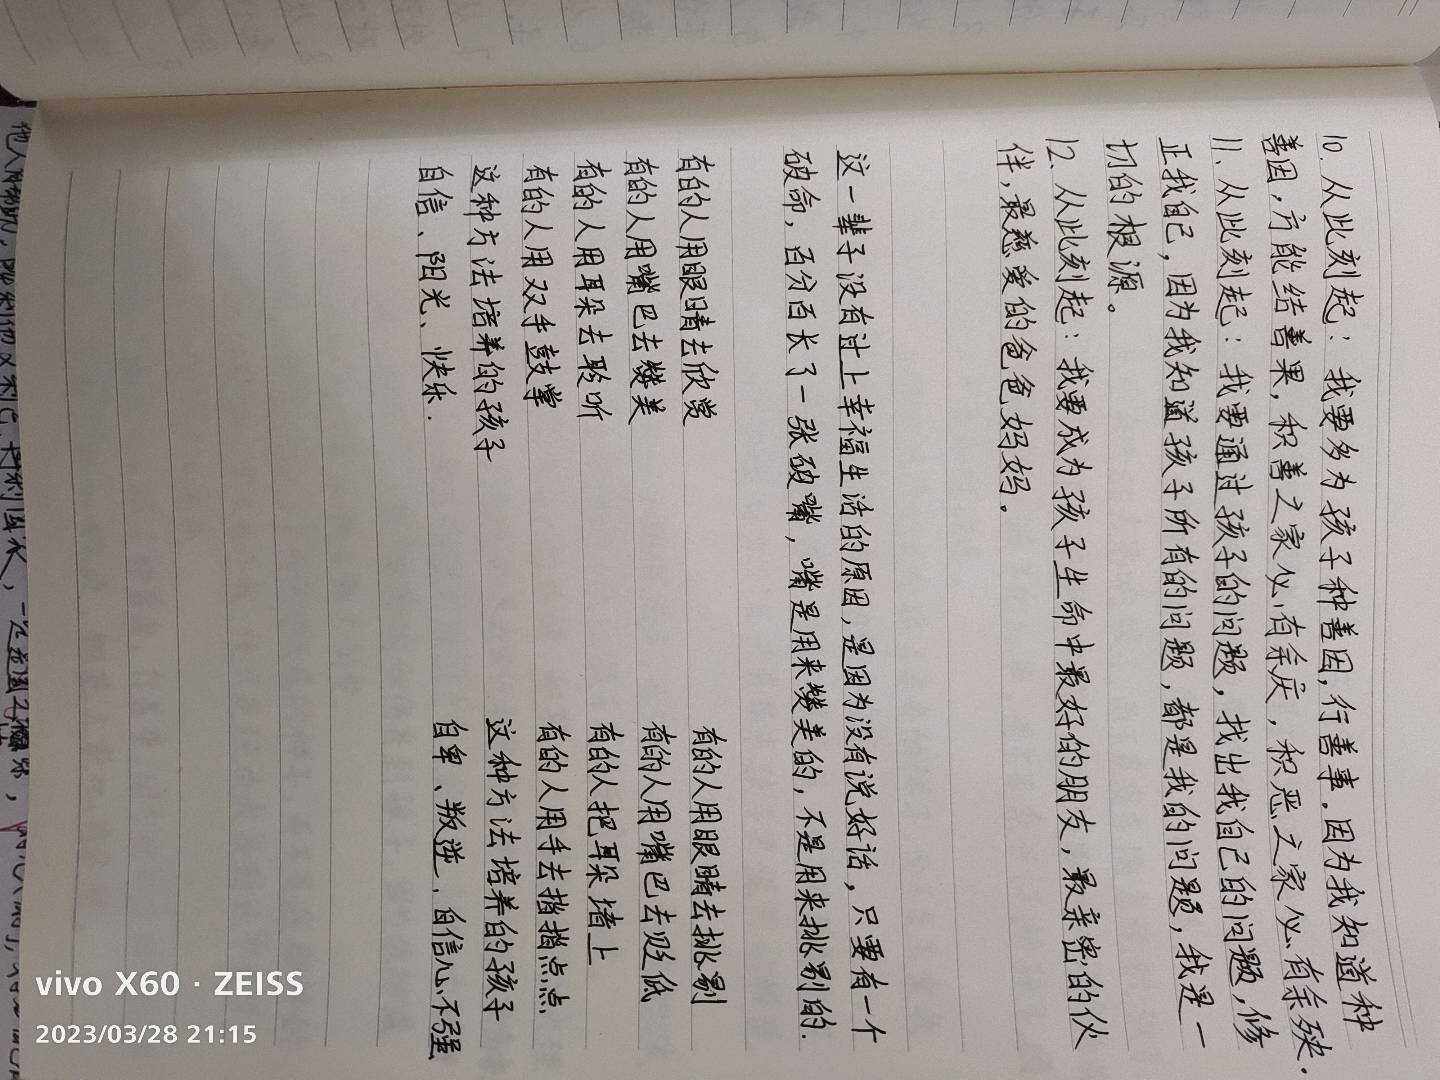 10. 从此刻起：我要多为孩子种善因，行善事。因为我知道种
善因，方能结善果，积善之家必有余庆，积恶之家必有余殃。
11、从此刻起：我要通过孩子的问题，找出我自己的问题，修
正我自己，因为我知道孩子所有的问题，都是我的问题，我是一
切的根源。
12、从此刻起：我要成为孩子生命中最好的朋友，最亲密的伙
伴，最慈爱的爸爸妈妈。
这一辈子没有过上幸福生活的原因，是因为没有说好话，只要有一个
破命，百分百长了一张破嘴，嘴是用来赞美的，不是用来挑剔的.
有的人用眼睛去欣赏
有的人用嘴巴去赞美
有的人用耳朵去聆听
有的人用双手鼓掌
这种方法培养的孩子
自信、阳光、快乐.
有的人用眼睛去挑剔
有的人用嘴巴去贬低
有的人把耳朵堵上
有的人用手去指指点点
这种方法培养的孩子
自卑、叛逆.自信心不强
vivo X60 · ZEISS
2023/03/28 21:15